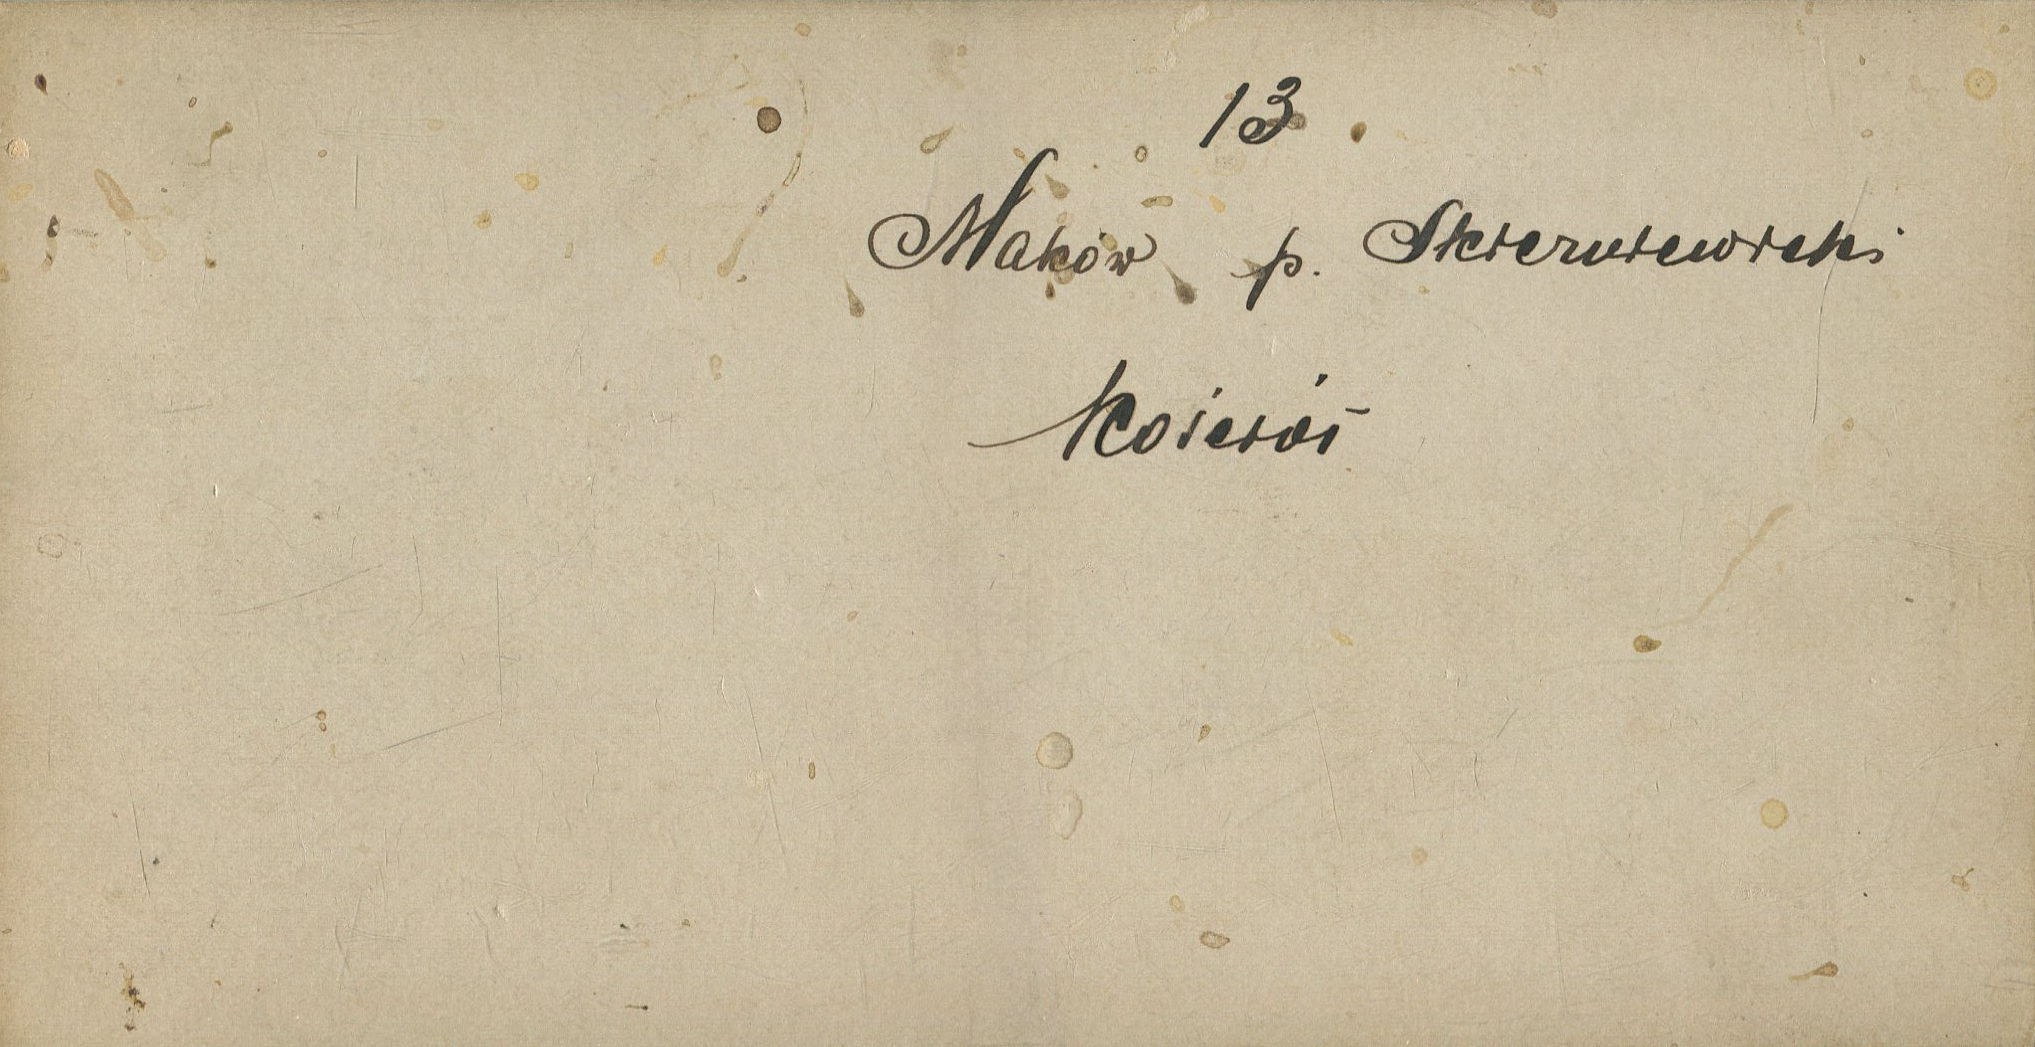 13
Maków p. Skierniewicki
Kościół